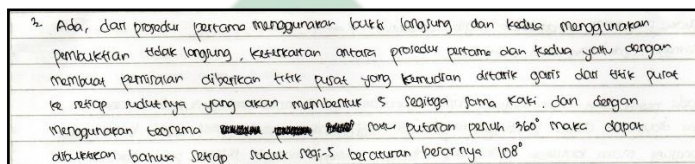 3. Ada, dari prosedur pertama menggunakan bukti langsung dan kedua menggunakan
pembuktian tidak langsung, keterkaitan antara prosedur pertama dan kedua yaitu dengan
membuat pemisalan diberikan titik pusat yang kemudian ditarik garis dari titik pusat
ke setiap sudutnya yang akan membentuk 5 segitiga sama kaki. dan dengan
menggunakan teorema satu putaran penuh 360° maka dapat
dibuktikan bahwa setiap sudut segi-5 beraturan besarnya 108°